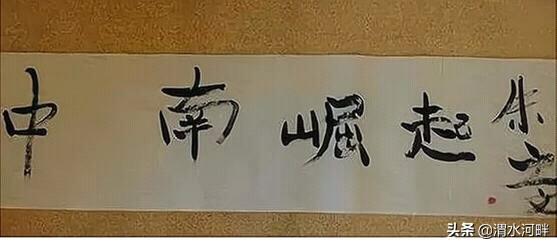 中南崛起
朱之文
头条 @渭水河畔